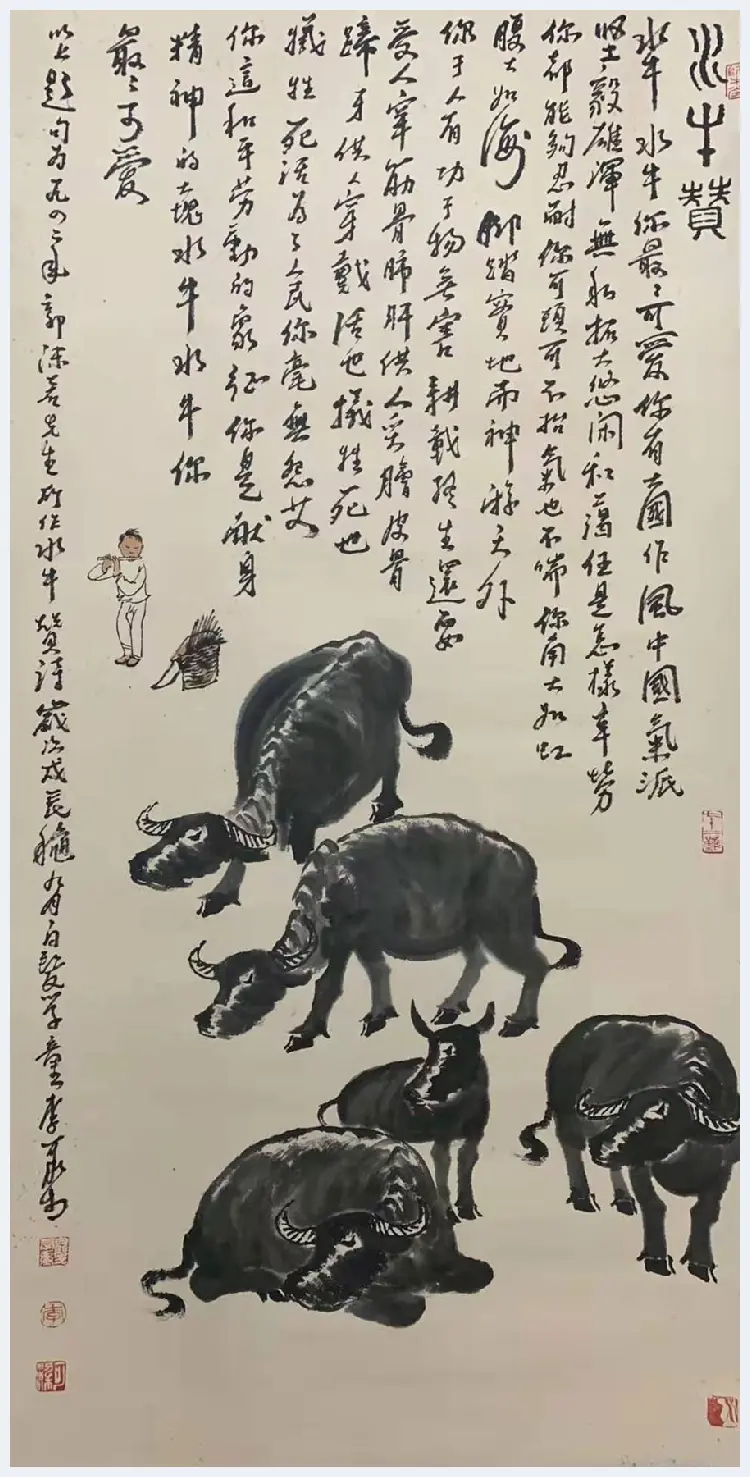 水牛贊
水牛水牛你最々可愛你有大國作風中國氣派
坚毅雄渾無私拓大悠闲和藹任是怎樣辛勞
你都能夠忍耐你可頭可不抬氣也不喘你角大如虹
腹大如海脚踏實地而神游天外
你于人有功于物無害耕載終生還要
受人宰筋骨肺肝供人炙膾皮骨
蹄牙供人穿戴活也犧牲死也
犧牲死活為了人民你毫無怨艾
你這和平勞動的象征你是献身
精神的大塊水牛水牛你
最々可愛
以上題句為一九四二年郭沫若先生所作水牛贊詩歲次戊辰穐九月白髮學童李可染